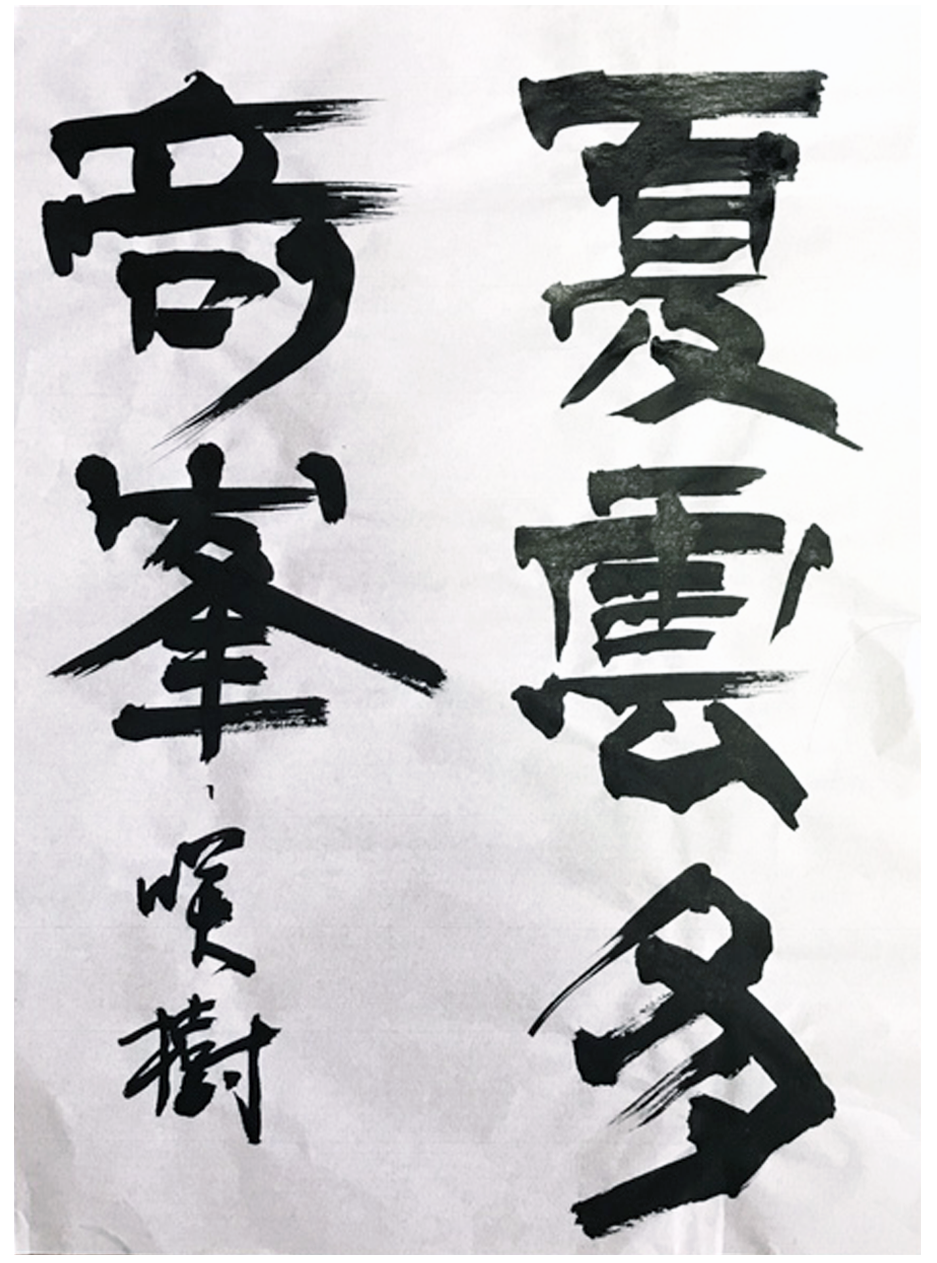 夏雲多
奇峯
咲樹